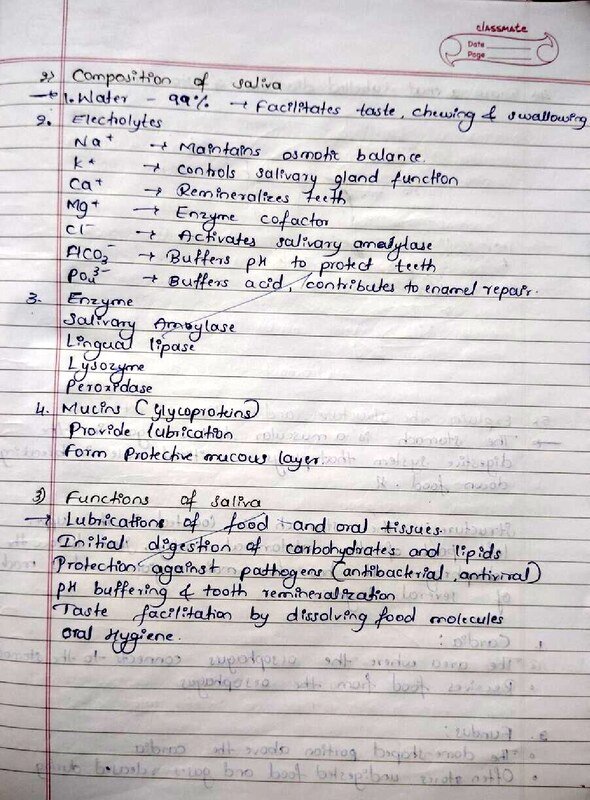 classmate
Date
Page
2) Composition of saliva
→ 1. Water - 99% → Facilitates taste, chewing & swallowing
2. Electrolytes
Na⁺ → Maintains osmotic balance.
K⁺ → controls salivary gland function
Ca⁺ → Remineralizes teeth
Mg⁺ → Enzyme cofactor
Cl⁻ → Activates salivary amalylase
HCO₃⁻ → Buffers pH to protect teeth
PO₄³⁻ → Buffers acid, contributes to enamel repair.
3. Enzyme
Salivary Amaylase
Lingual lipase
Lysozyme
Peroxidase
4. Mucins (Glycoproteins)
Provide lubrication
Form Protective mucous layer.
3) Functions of saliva
→ Lubrications of food and oral tissues.
Initial digestion of carbohydrates and lipids
Protection against pathogens (antibacterial, antiviral)
pH buffering & tooth remineralization
Taste facilitation by dissolving food molecules
Oral Hygiene.